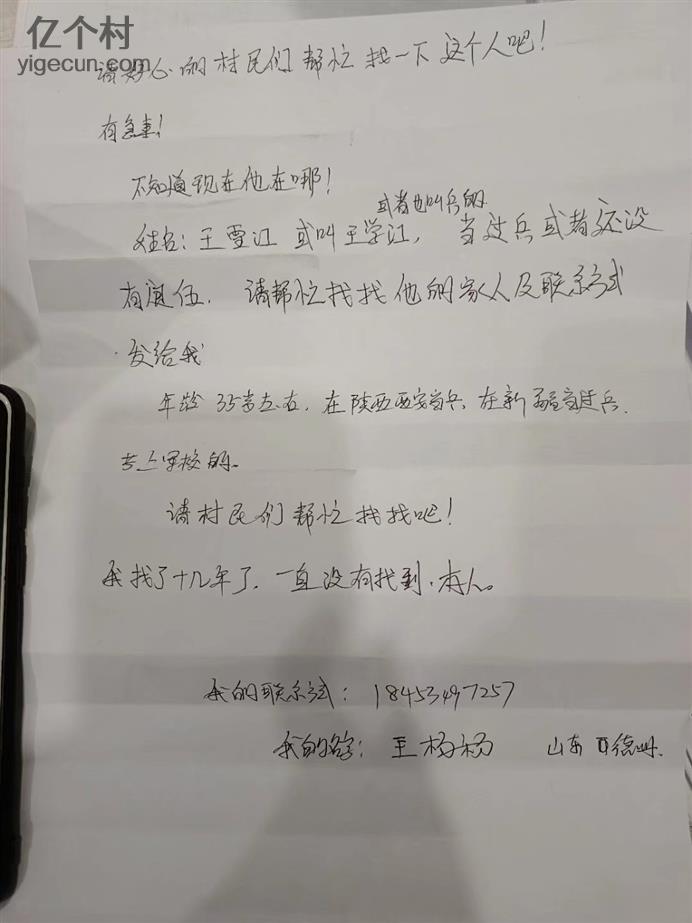 亿个村
yigecun.com
请好心的村民们帮忙找一下这个人吧！
有急事！
不知道现在他在哪！
或者也叫兵的
姓名：王雪江 或叫王学江， 当过兵或者还没
有退伍． 请帮忙找找他的家人及联系方式
．发给我
年龄35岁左右．在陕西西安当兵．在新疆当过兵．
考上学校的．
请村民们帮忙找找吧！
我找了十几年了．一直没有找到．本人。
我的联系方式：18453497257
我的名字：王杨杨 山东 德州．